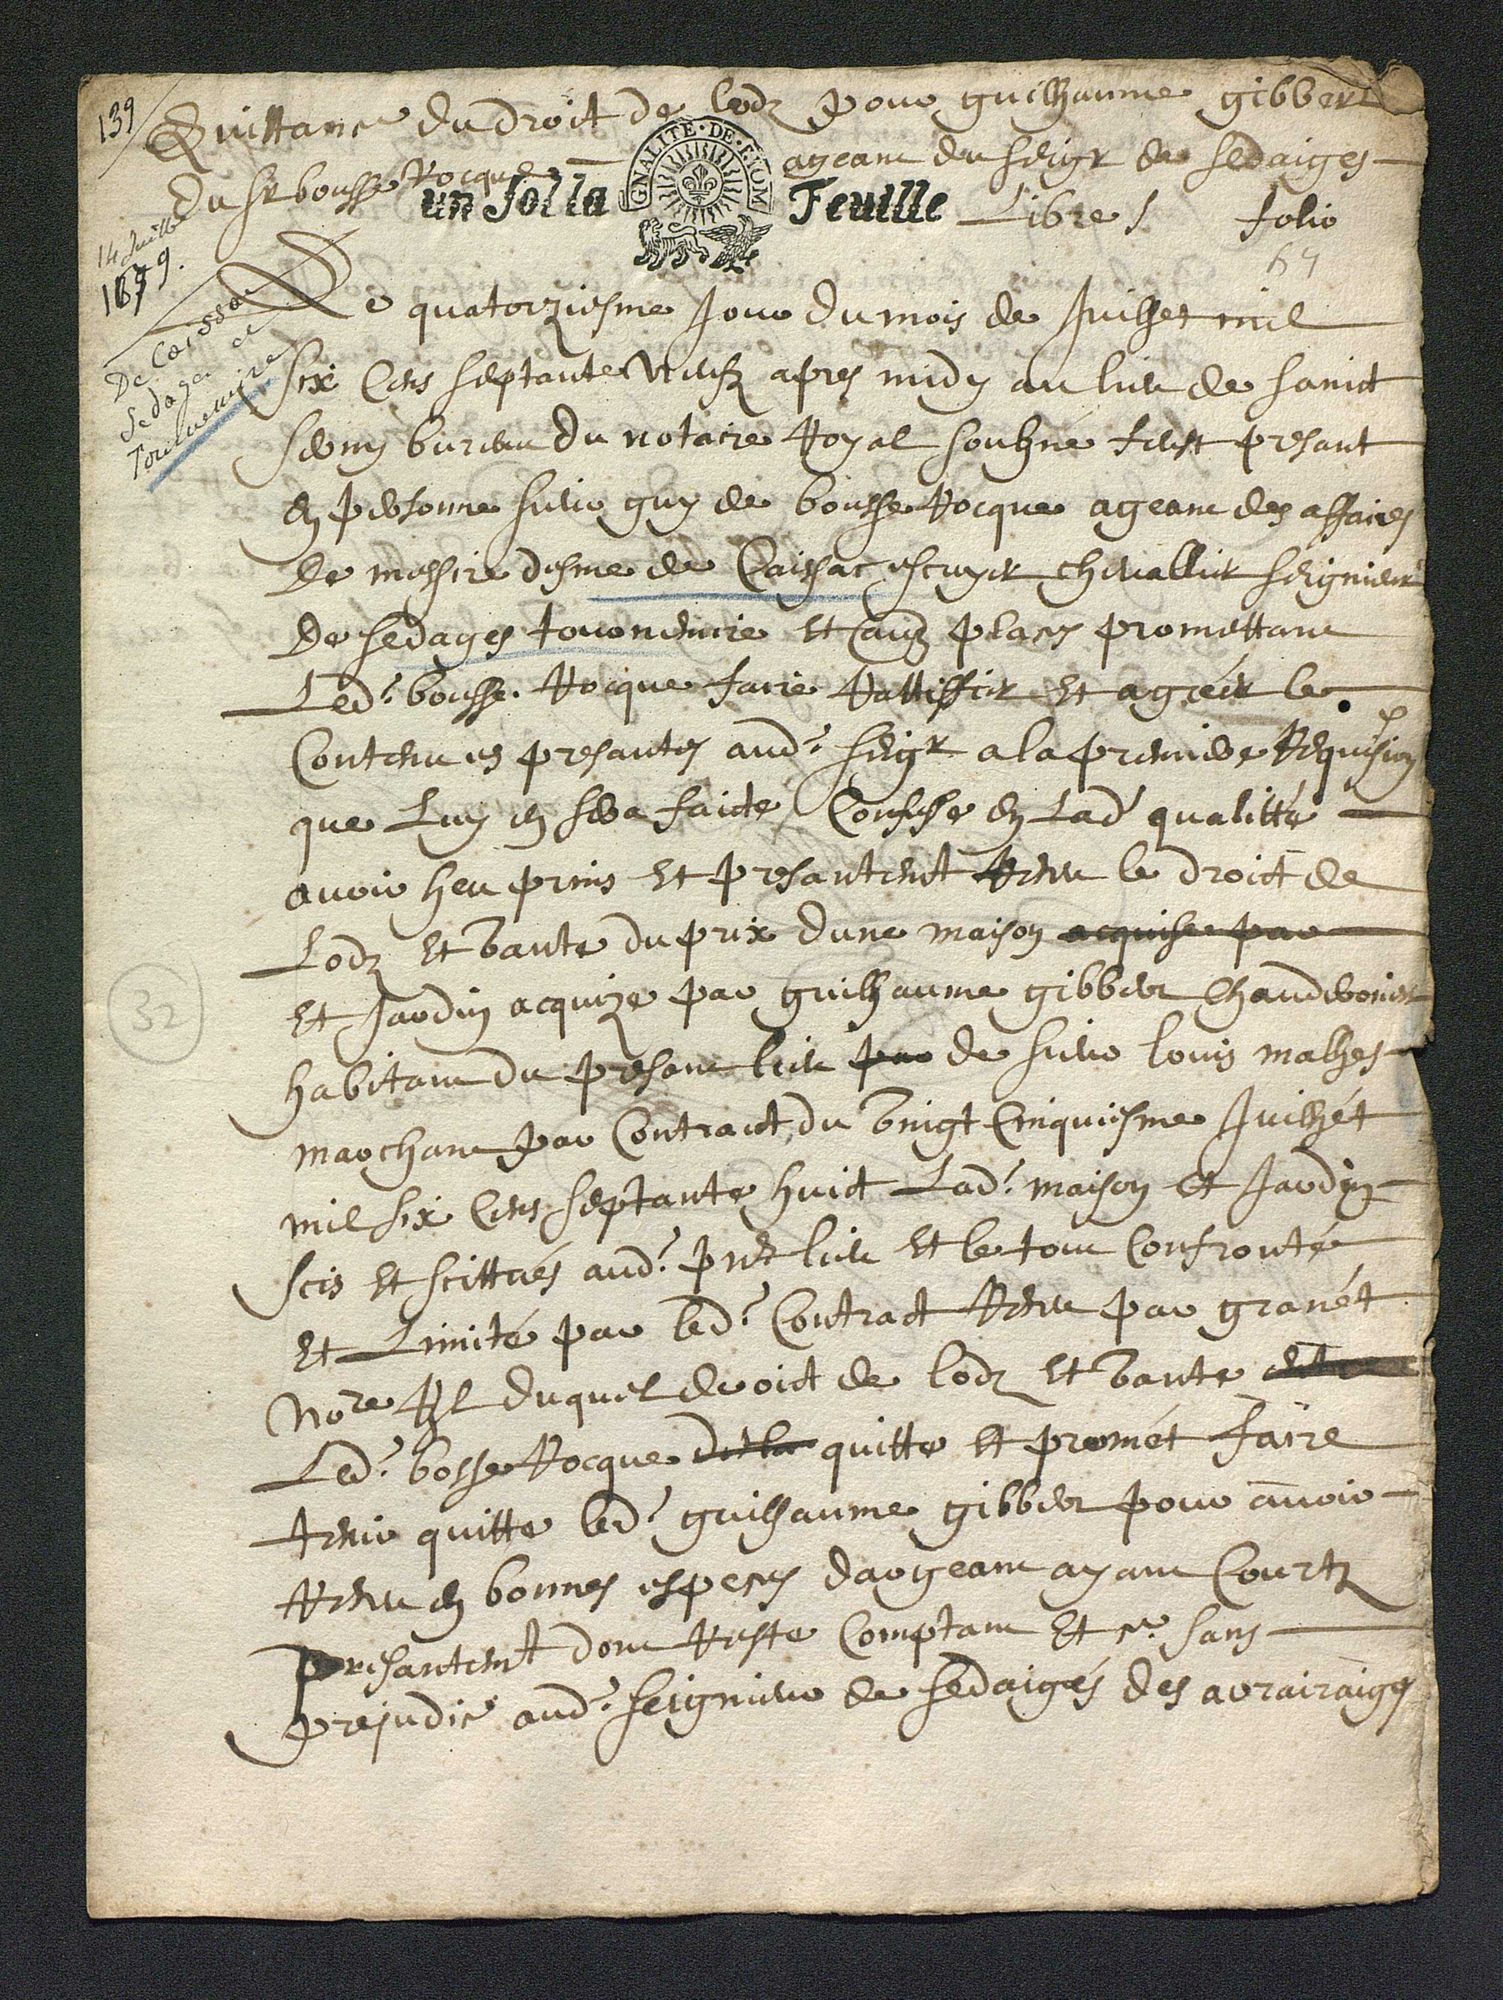 139
Quittance du droit de lodz pour guilhaume gibbert
du sr bousse Rocque ageant du seigr de sedaiges
GNALITE·DE·RIOM
un Sol la Feuille
Libre s folio
67
14 Juillet
1679.
De Caissac
Sedage et
Tournemire
Le quatorziesme Jour du mois de Juilhet mil
six Cens septante neufz apres midy au lieu de sainct
bureau du notaire Royal soubzné feust presant
en personne sieur guy de bousse Rocque ageant des affaires
De messire desme de Caissac escuyer chevallier seignieur
De sedages tournemire et aux places promettant
Led. bousse Rocque faire Rattiffier et agréer le
Contenu es presantes aud. seigr a la premiere Requi[siti]on
que Luy en sera faicte, Confesse en Lad qualitté
avoir heu prins et presantemt Receu le droict de
Lodz et vante du prix dune maison acquise par
et Jardin acquize par guilhaume gibbert Chaudronier
habitant du presant lieu par de sieur louis malhes
marchant par Contract du vingt Cinquiesme Juilhét
mil six Cens septante huict Lad. maison et Jardin
scis et scittués aud. pnt lieu et le tout Confronté
et Limité par led. Contract Receu par granét
Nore Rl duquel droict de lodz et vante
Led. bosse Rocque quitte et promét faire
tenir quitte led. guilhaume gibber pour avoir
Receu en bonnes especes dargeant ayant Courtz
Presantemt dont Reste Comptant et sans
prejudice aud. seignieur de sedaigés des arrairaiges
32